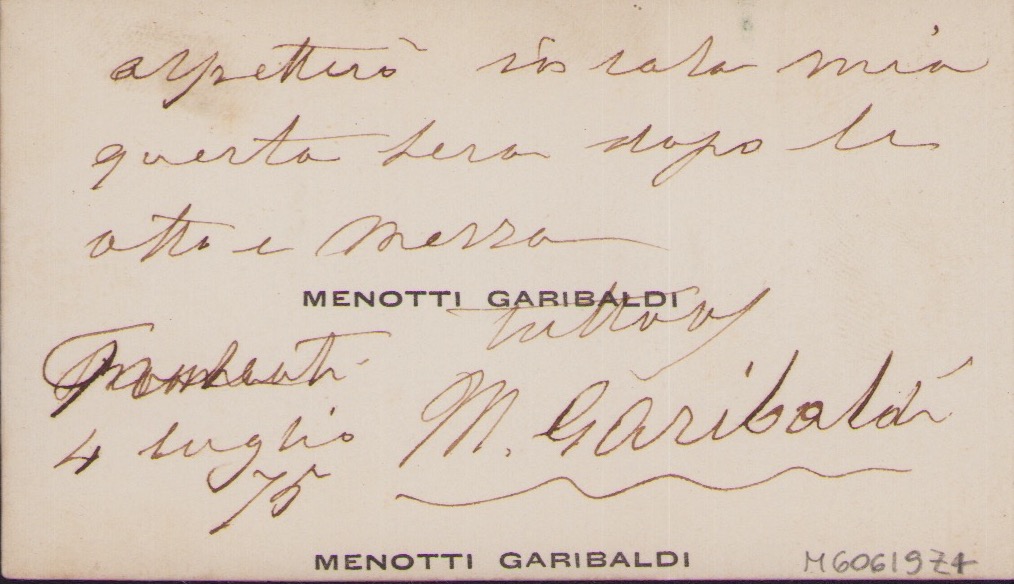 aspetterò in casa mia
questa sera dopo le
otto e mezza
MENOTTI GARIBALDI
tutto vo
4 luglio
75
M. Garibaldi
MENOTTI GARIBALDI
M60619Z4